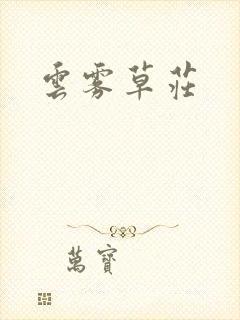 雲霧草莊
萬寶